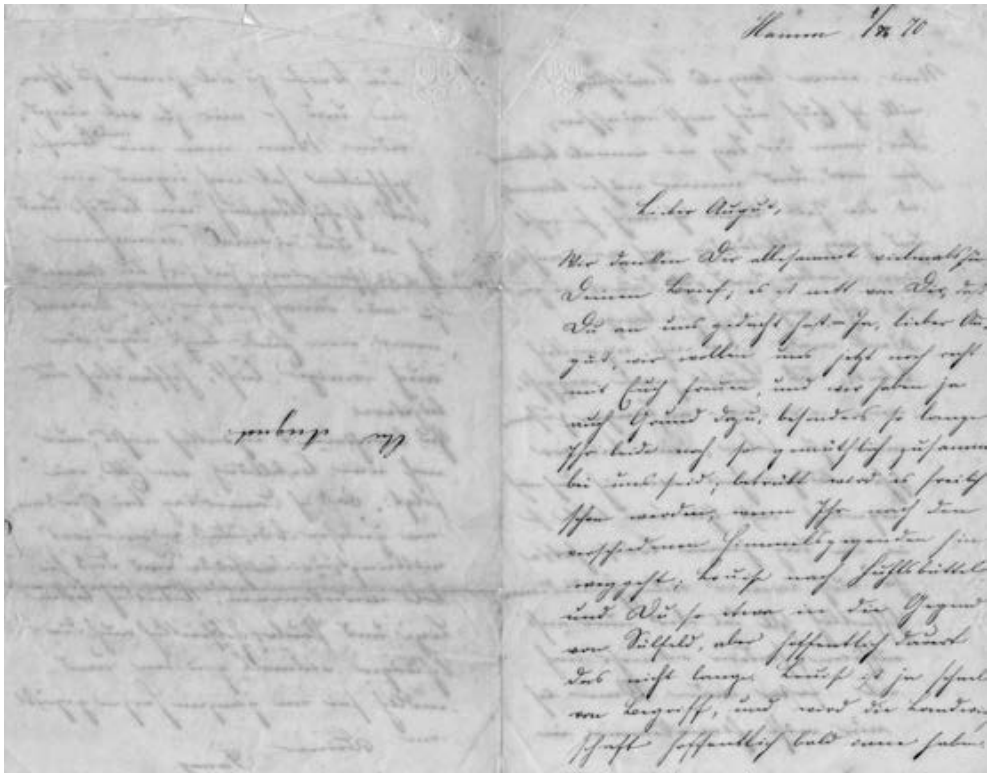 Hamm 70
Lieber August,
Wir danken Dir allesammt vielmals für
Deinen Brief, es ist nett von Dir, daß
Du an uns gedacht hast. – Ja, lieber Au-
gust, wir wollen uns jetzt noch recht
mit Euch freuen, und wir haben ja
auch Grund dazu, besonders so lange
Ihr beide noch so gemüthlich zusamm
bei uns seid; betrübt wird es freilich
schon werden, wenn Ihr nach den
verschiedenen Himmelsgegenden hin
weggeht, nach Fuhlsbüttel
und Du so etwa in die Gegend
von Sülfeld, aber hoffentlich dauert
das nicht lange. ist ja schnell
von Begriff, und wird die Landwir
schaft hoffentlich bald inne haben.
An August.